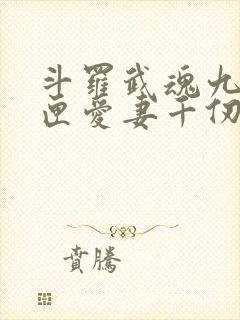 斗羅武魂九
匣愛妻千仞
賁騰